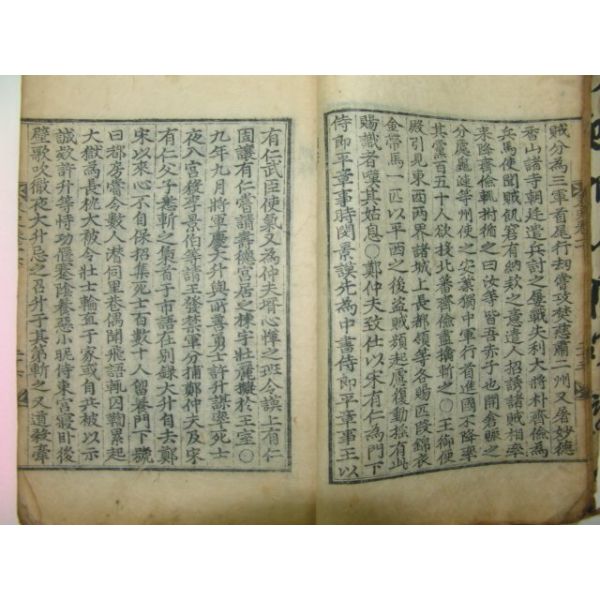 賊分為三軍首尾行刼嘗攻焚慈肅二州又屠妙德
香山諸寺朝廷遣兵討之屢戰失利大將朴齊儉為
兵馬使聞賊飢窘有納欵之意遣人招諭諸賊相率
来降齊儉輒拊循之曰汝等皆吾赤子也開倉賑之
分處龜漣等州使之安業獨中軍行首進國不降率
其黨百五十人欲投北蕃齊儉盡擒斬之〇王御便
殿引見東西兩界諸城上長都領等各賜匹段錦衣
金帶馬一匹以平西之後盗賊領起慮復動揺有此
賜識者嘆其姑息〇鄭仲夫致仕以宋有仁為門下
侍郎平章事時閔景謨先為中書侍郎平章事王以
有仁武臣使氣又為仲夫壻心憚之班令謨上有仁
固讓有仁嘗請壽德宮居之棟宇壮麗擬於王室〇
九年九月將軍慶大升與所善勇士許升謀率死士
夜入宮殺李景伯等請王發禁軍分捕鄭仲夫及宋
有仁父子悉斬之梟首于市語在别錄大升自去鄭
宋以来心不自保招集死士百數十人留養門下號
曰都房嘗令數人潜伺里巷偶聞飛語輒囚鞫累起
大獄為長枕大被令壮士輪直于家或自共被以示
誠欵許升等恃功偃蹇陰養惡小昵侍東宮寢卧後
壁歌吹徹夜大升忌之召升于其弟斬之又道殺甯